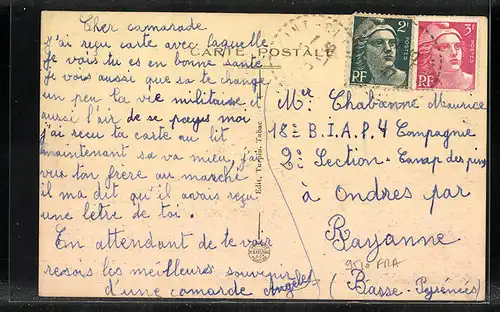 Cher camarade
j'ai reçu carte avec laquelle
je vois tu es en bonne santé
je vois aussi que sa te change
un peu la vie militaire et
aussi l'air de se pays moi
j'ai recu ta carte au lit
maintenant sa va mieu, j'ai
vu ton frère au marché
il ma dit qu'il avais reçu
une lètre de toi.
En attendant de te voir
resois les meilleurs souvenir
d'une camarde Angèle
CARTE POSTALE
Edit. Turpin, Tabac
2F
RF
POSTES
3F
RF
POSTES
Mr Chabanne Maurice
18e B.I.A.P. 4 Compagnie
2e Section - Camp des pins
à Ondres par
Bayanne
(Basse-Pyrénées)
FRA